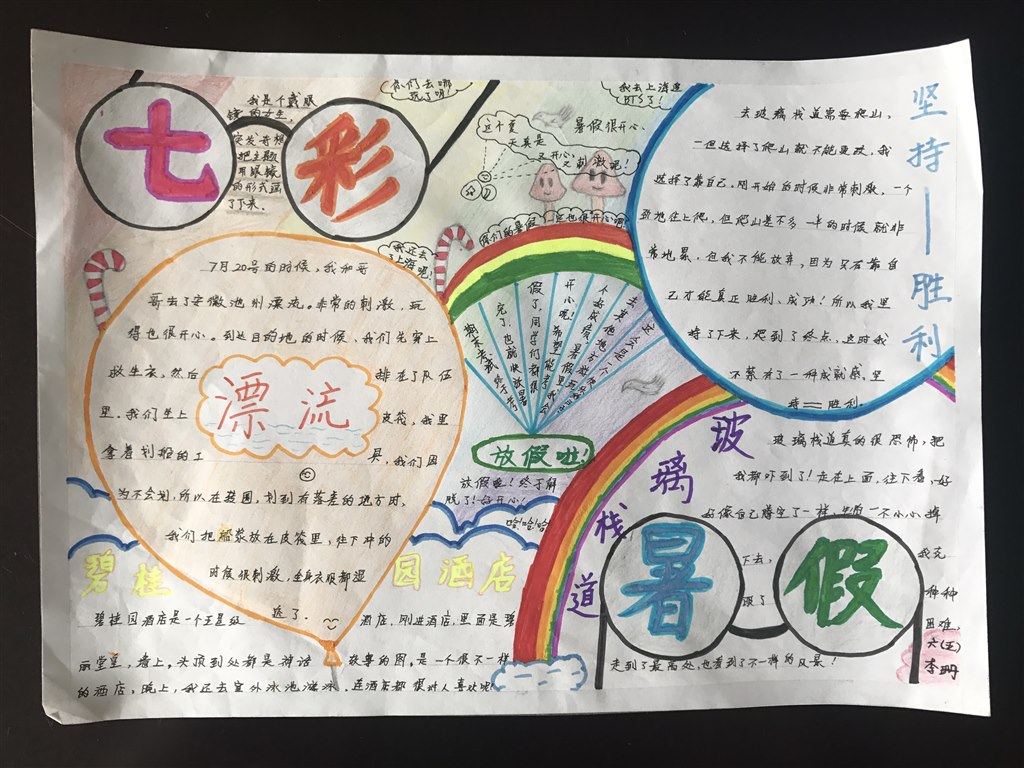 七彩
暑假
我是个戴眼
镜的女生，
突发奇想
把主题
用眼镜
的形式画
了下来。
你们去哪
玩了呀？
我去上海迪
BTS了！
这个夏
天真是
又开心又刺激呢！
暑假很开心、
你们的暑假一定也很开心吧
我还去
了上海呢！
7月20号的时候，我和哥
哥去了安徽池州漂流。非常的刺激，玩
得也很开心。到达目的地的时候，我们先穿上
救生衣，然后排在了队伍
里。我们坐上皮筏，我里
拿着划船的工具，我们因
为不会划，所以在
划到有落差的地方时，
我们把
放在皮筏里，往下冲的
时候很刺激，全身衣服都湿
透了。
漂流
期末考试终于考
完了，也就快放暑
假了，同学们都很
开心呢。
放假啦！
放假啦！终于解
脱了！好开心！
哈哈哈
坚持——胜利
去玻璃栈道需要爬山，
一但选择了爬山就不能更改，我
选择了靠自己。刚开始的时候非常刺激，一个
劲地往上爬，但爬山差不多一半的时候就非
常地累，但我不能放弃，因为只有靠自
己才能真正胜利、成功！所以我坚
持了下来，爬到了终点，这时我
不禁有了一种成就感。坚
持==胜利.
玻璃栈道
玻璃栈道真的很恐怖，把
我都吓到了！走在上面，往下看，好
好像自己蹲空了一样，
一不小心掉
下去，我克
服了种种
困难，
走到了最高处，也看到了不一样的风景！
六(五)
李珊
碧桂园酒店
碧桂园酒店是一个五星级酒店，刚进酒店，里面是碧
丽堂皇，墙上，头顶到处都是神话故事的图。是一个很不一样
的酒店，晚上，我还去室外泳池游泳。这酒店都很对人喜欢呢